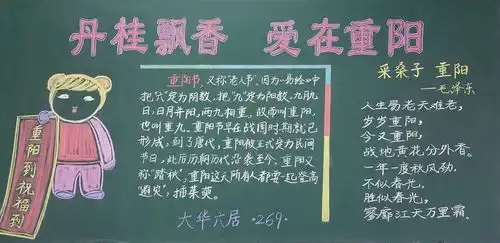 丹桂飘香 爱在重阳
重阳到祝福到
重阳节，又称“老人节”。因为《易经》中
把“六”定为阴数，把“九”定为阳数，九月九
日，日月并阳，两九相重，故而叫重阳，
也叫重九。重阳节早在战国时期就已
形成，到了唐代，重阳被正式定为民间
节日，此后历朝历代沿袭至今。重阳又
称“踏秋”，重阳这天所有人都要一起登高
“避灾”，插茱萸。
大华六居·269·
采桑子 重阳
——毛泽东
人生易老天难老，
岁岁重阳，
今又重阳，
战地黄花分外香。
一年一度秋风劲，
不似春光，
胜似春光，
寥廓江天万里霜。